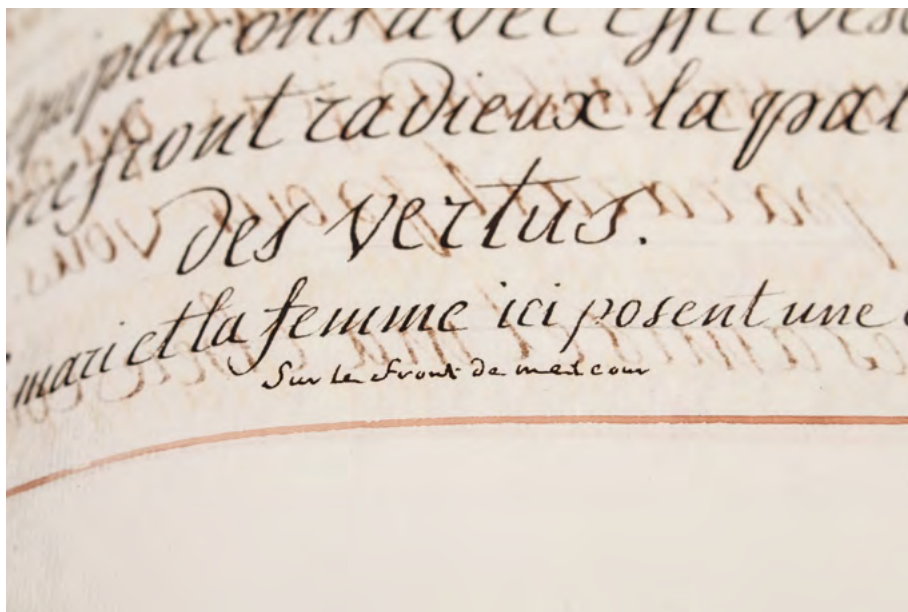 plaçons avec effervesc
front radieux la pal
des vertus.
mari et la femme ici posent une
Sur le front de melcour